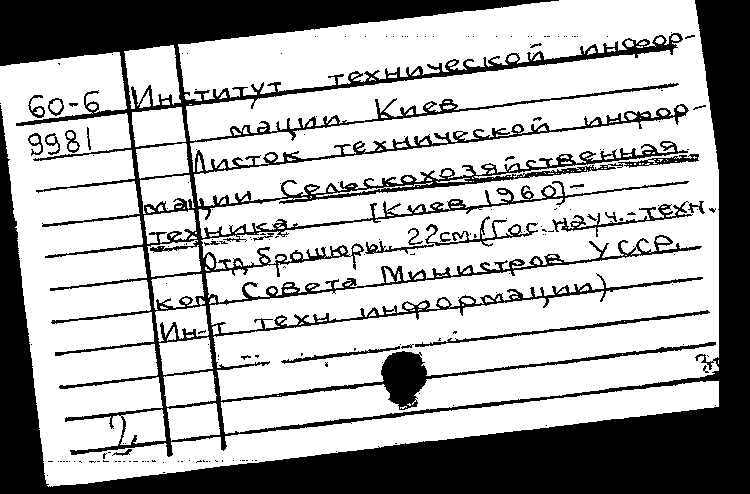 60-6 Институт технической инфор-
9981 мации. Киев
Листок технической инфор-
мации. Сельскохозяйственная
техника. [Киев, 1960]-
Отд. брошюры. 22см. (Гос. науч.-техн.
ком. Совета Министров УССР.
Ин-т техн. информации).
2